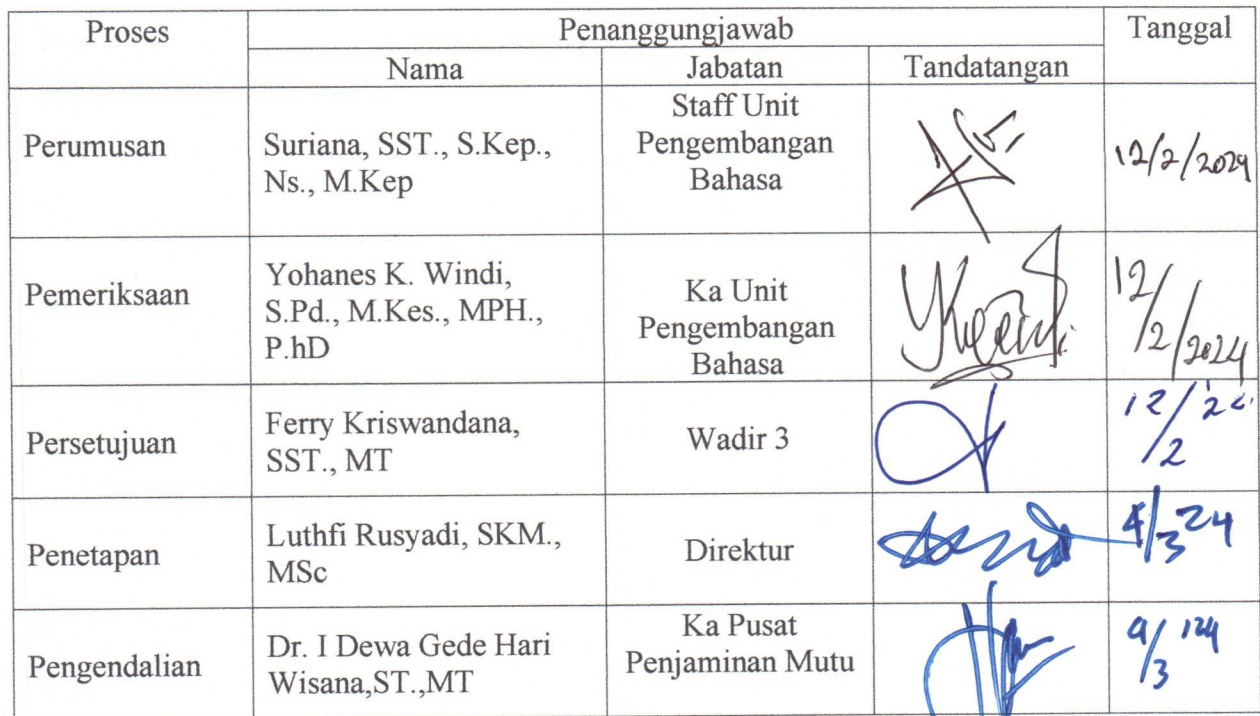 Proses Penanggungjawab Tanggal
Nama Jabatan Tandatangan
Perumusan
Suriana, SST., S.Kep.,
Ns., M.Kep
Staff Unit
Pengembangan
Bahasa
12/2/2024
Pemeriksaan
Yohanes K. Windi,
S.Pd., M.Kes., MPH.,
P.hD
Ka Unit
Pengembangan
Bahasa
12/2/2024
Persetujuan
Ferry Kriswandana,
SST., MT
Wadir 3
12/2
Penetapan
Luthfi Rusyadi, SKM.,
MSc
Direktur
4/3 24
Pengendalian
Dr. I Dewa Gede Hari
Wisana,ST.,MT
Ka Pusat
Penjaminan Mutu